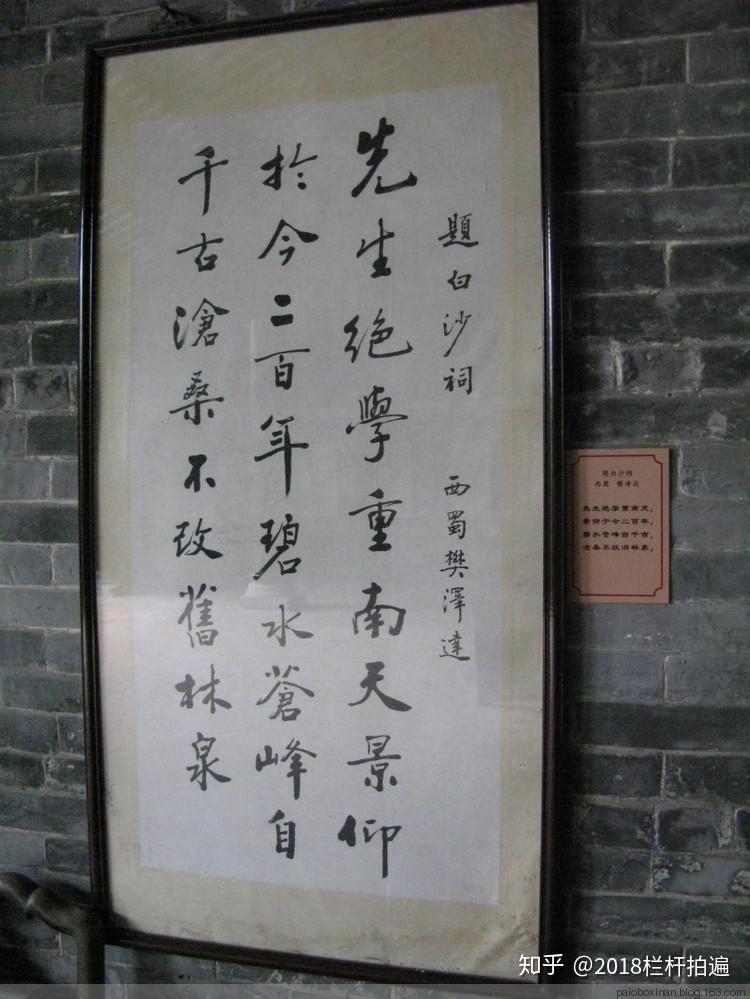 題白沙祠 西蜀樊澤達
先生絶學重南天景仰
於今二百年碧水蒼峰自
千古滄桑不改舊林泉
题白沙祠
西蜀 樊泽达
先生绝学重南天，
景仰于今二百年，
碧水苍峰自千古，
沧桑不改旧林泉。
知乎 @2018栏杆拍遍
paioboxinan.blog.163.com